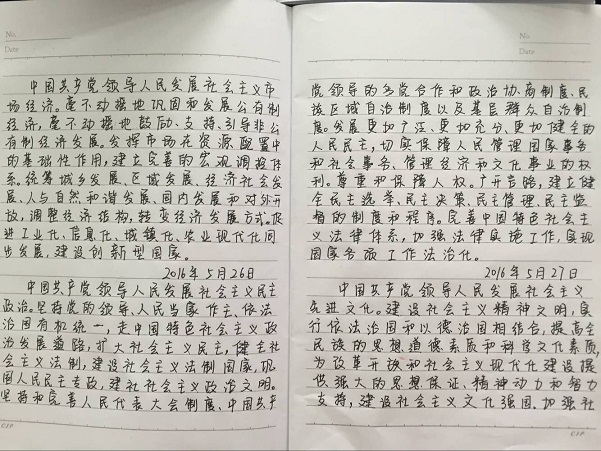 No.
Date
中国共产党领导人民发展社会主义市
场经济。毫不动摇地巩固和发展公有制
经济，毫不动摇地鼓励、支持、引导非公
有制经济发展。发挥市场在资源配置中
的基础性作用，建立完善的宏观调控体
系。统筹城乡发展、区域发展、经济社会发
展、人与自然和谐发展、国内发展和对外开
放，调整经济结构，转变经济发展方式。促
进工业化、信息化、城镇化、农业现代化同
步发展，建设创新型国家。
2016年5月26日
中国共产党领导人民发展社会主义民主
政治。坚持党的领导、人民当家作主、依法
治国有机统一，走中国特色社会主义政
治发展道路，扩大社会主义民主，健全社
会主义法制，建设社会主义法制国家，巩
固人民民主专政，建社社会主义政治文明。
坚持和完善人民代表大会制度、中国共产
CIP
No.
Date
党领导的多党合作和政治协商制度、民
族区域自治制度以及基层群众自治制
度。发展更加广泛、更加充分、更加健全的
人民民主，切实保障人民管理国家事务
和社会事务、管理经济和文化事业的权
利。尊重和保障人权。广开言路，建立健
全民主选举、民主决策、民主管理、民主监
督的制度和程序。完善中国特色社会主
义法律体系，加强法律实施工作，实现
国家各项工作法治化。
2016年5月27日
中国共产党领导人民发展社会主义
先进文化。建设社会主义精神文明，实
行依法治国和以德治国相结合，提高全
民族的思想道德素质和科学文化素质，
为改革开放和社会主义现代化建设提
供强大的思想保证、精神动力和智力
支持，建设社会主义文化强国。加强社
CIP